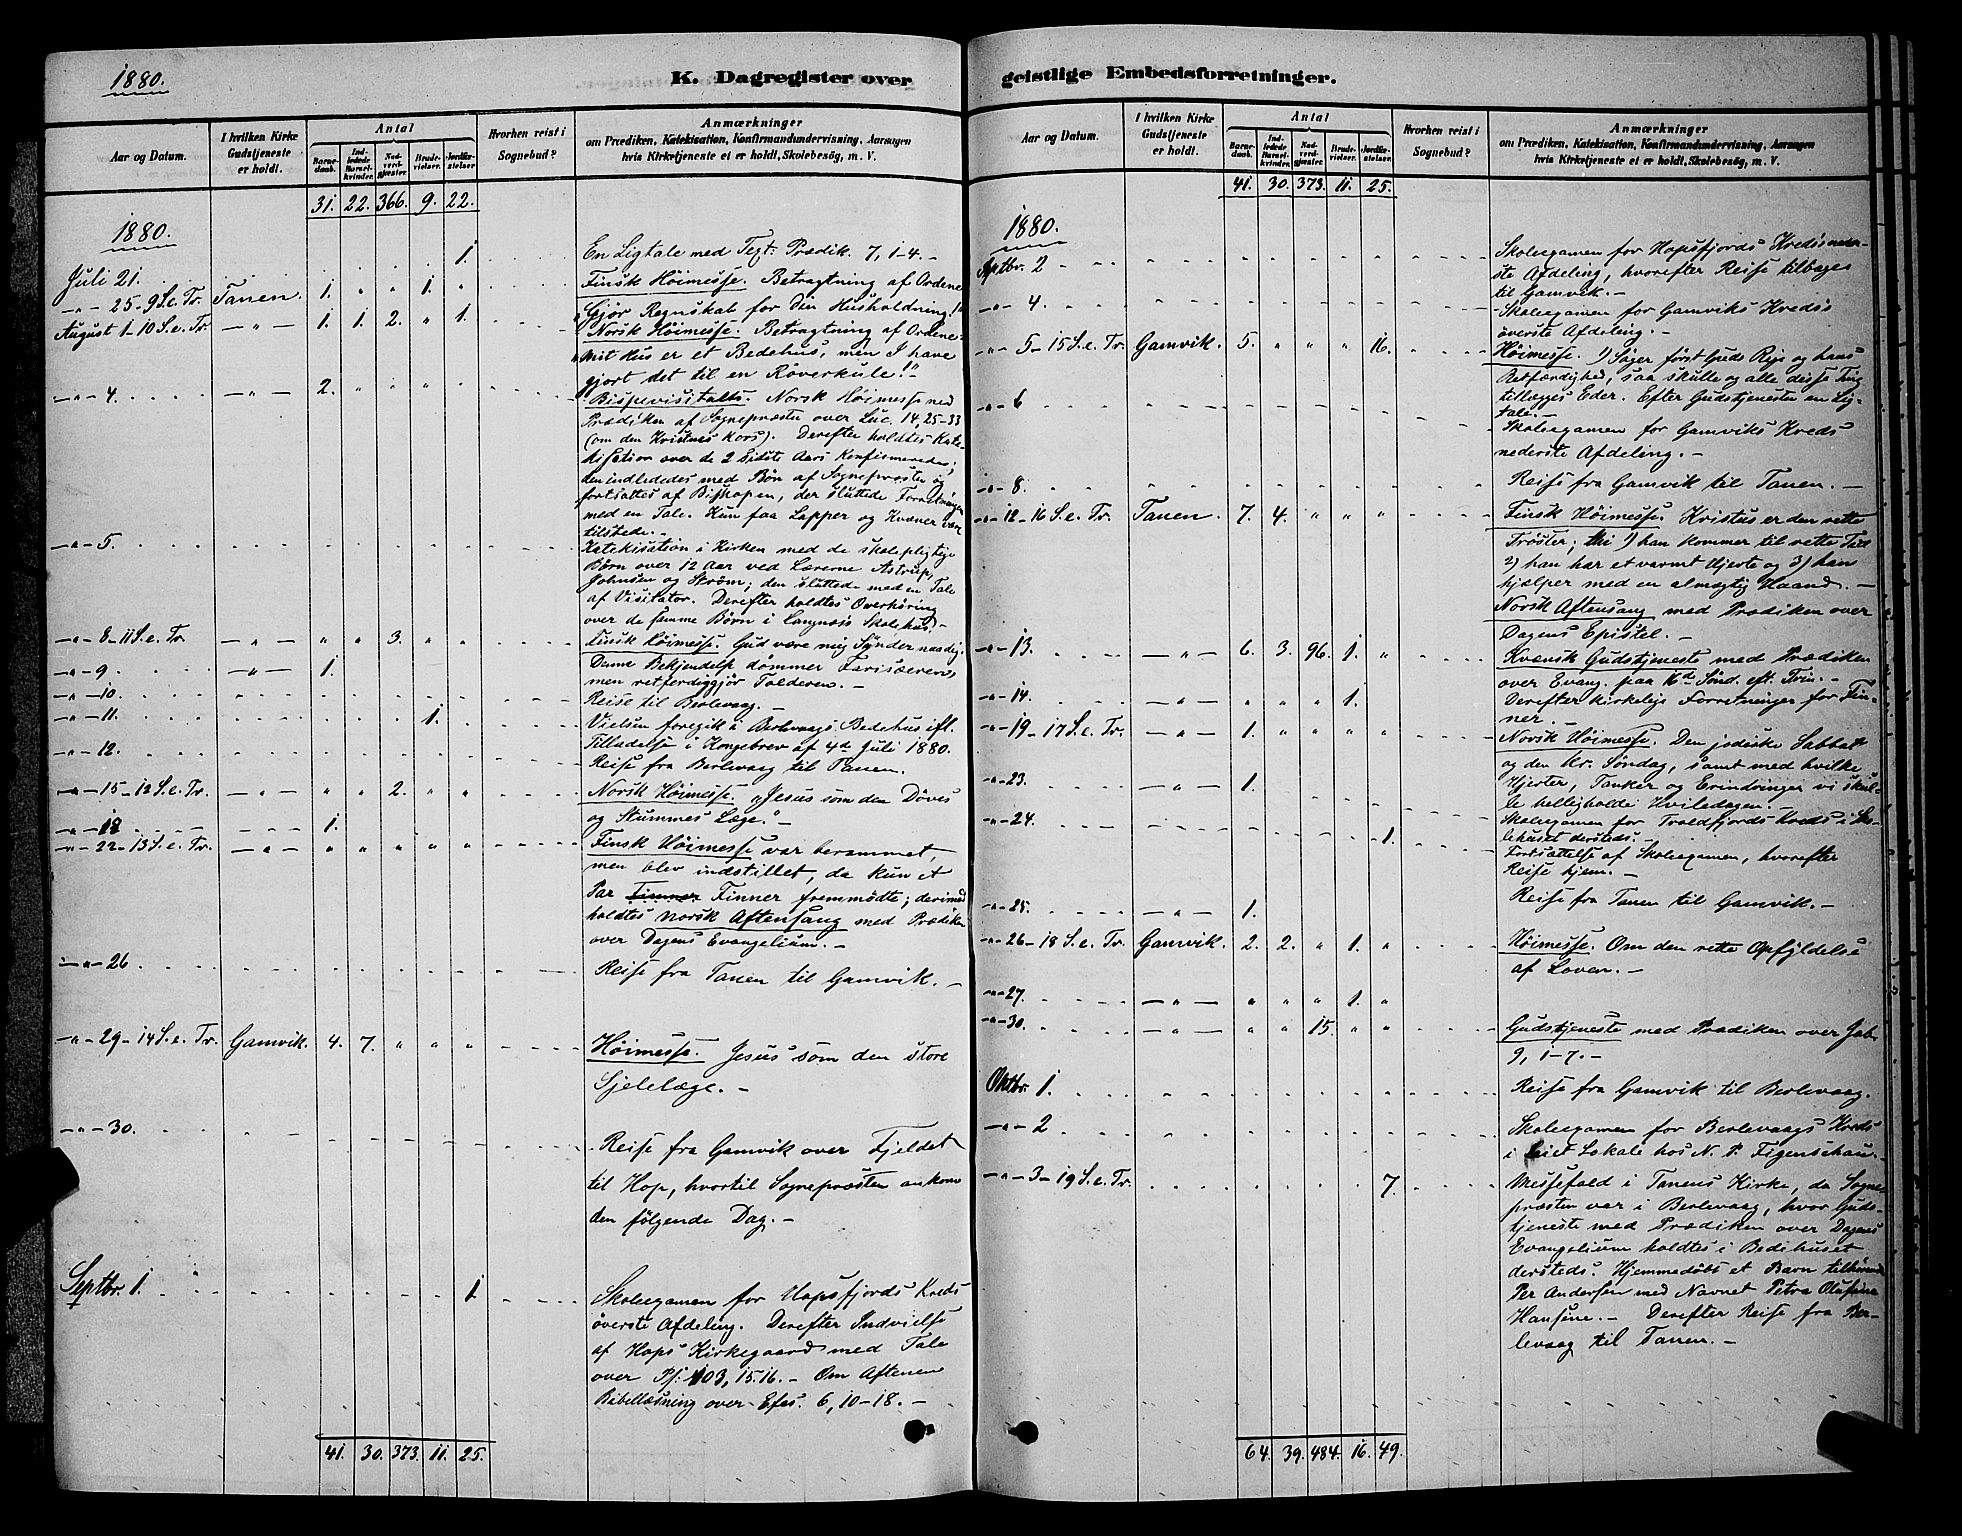 1880.
K. Dagregister over
Aar og Datum.
I hvilken Kirke Gudstjeneste er holdt.
Antal
Barnedaab.
Indledede Barselkvinder.
Nadverdgjæster.
Brudevielser.
Jordfæstelser.
Hvorhen reist i Sognebud?
Anmærkninger
om Prædiken, Katekisation, Konfirmandundervisning, Aarsagen
hvis Kirketjeneste ei er holdt, Skolebesøg, m. V.
31. 22. 366. 9. 22.
1880.
Juli 21. 1. En Ligtale med Text: Prædik. 7, 1-4. –
-"- 25 - 9 S. e. Tr. Tanen. 1. " " 1. " Finsk Höimesse. Betragtning af Ordene
"Gjör Regnskab for din Husholdning!"
August 1 - 10 S. e. Tr. -"- 1. 1. 2. " 1. Norsk Höimesse. Betragtning af Ordene
"Mit Hus er et Bedehus, men I have
gjort det til en Röverkule!"
-"- 4. -"- 2. " " " " Bispevisitats. Norsk Höimesse med
Prædiken af Sognepræsten over Luc. 14, 25-33
(om den Kristnes Kors). Derefter holdtes Kate-
kisation over de 2 sidste Aars Konfirmerede;
den indlededes med Bön af Sognepræsten og
fortsattes af Biskopen, der sluttede Forretningen
med en Tale. Kun faa Lapper og Kvæner vare
tilstede. –
-"- 5. Katekisation i Kirken med de skolepligtige
Börn over 12 Aar ved Lærerne Astrup,
Johnsen og Ström; den sluttede med en Tale
af Visitator. Derefter holdtes Overhöring
over de samme Börn i Langnæs Skolehus. –
-"- 8 - 11 S. e. Tr. -"- " " 3. " " Finsk Höimesse. Gud være mig Synder naadig.
Denne Bekjendelse dömmer Farisæeren,
men retferdiggjör Tolderen. –
-"- 9 -"- 1.
-"- 10. Reise til Berlevaag. –
-"- 11. 1. Vielsen foregik i Berlevaags Bedehus ifl.
Tilladelse i Kongebrev af 4d Juli 1880.
-"- 12. Reise fra Berlevaag til Tanen.
-"- 15 - 12 S. e. Tr. -"- " " 2. " " Norsk Höimesse. "Jesus som den Döves
og Stummes Læge." –
-"- 18 1.
-"- 22 - 13 S. e. Tr. -"- " " " " " Finsk Höimesse var berammet,
men blev indstillet, da kun et
Par Finner Finner fremmödte; derimod
holdtes Norsk Aftensang med Prædiken
over Dagens Evangelium. –
-"- 26 Reise fra Tanen til Gamvik. –
-"- 29 - 14 S. e. Tr. Gamvik. 4. 7. " " " Höimesse. Jesus som den store
Sjelelæge. –
-"- 30. Reise fra Gamvik over Fjeldet
til Hop, hvortil Sognepræsten ankom
den fölgende Dag. –
Septbr. 1. 1. Skoleexamen for Hopsfjords Kreds
överste Afdeling. Derefter Indvielse
af Hops Kirkegaard med Tale
over Ps. 103, 15.16. – Om Aftenen
Bibellæsning over Efes. 6, 10-18. –
41. 30. 373. 11. 25.
geistlige Embedsforretninger.
Aar og Datum.
I hvilken Kirke Gudstjeneste er holdt.
Antal
Barnedaab.
Indledede Barselkvinder.
Nadverdgjæster.
Brudevielser.
Jordfæstelser.
Hvorhen reist i Sognebud?
Anmærkninger
om Prædiken, Katekisation, Konfirmandundervisning, Aarsagen
hvis Kirketjeneste ei er holdt, Skolebesøg, m. V.
41. 30. 373. 11. 25.
1880.
Septbr. 2 Skoleexamen for Hopsfjords Kreds neder-
ste Afdeling, hvorefter Reise tilbage
til Gamvik. –
-"- 4. Skoleexamen for Gamviks Kreds
överste Afdeling. –
-"- 5 - 15 S. e. Tr. Gamvik. 5. " " " 16. Höimesse. 1) Söger först Guds Rige og hans
Retfærdighed, saa skulle og alle disse Ting
tillægges Eder. Efter Gudstjenesten en Lig-
tale. –
-"- 6 Skoleexamen for Gamviks Kreds
nederste Afdeling. –
-"- 8. Reise fra Gamvik til Tanen. –
-"- 12 - 16 S. e. Tr. Tanen. 7. 4. " " " Finsk Höimesse. Kristus er den rette
Tröster; thi 1) han kommer til rette Tid
2) han har et varmt Hjerte og 3) han
hjælper med en almægtig Haand. –
Norsk Aftensang med Prædiken over
Dagens Epistel. –
-"- 13. -"- 6. 3. 96. 1. " Kvænsk Gudstjeneste med Prædiken
over Evang. paa 16d Sönd. eft. Trin. –
-"- 14. -"- " " " 1. Derefter kirkelige Forretninger for Fin-
ner.
-"- 19 - 17 S. e. Tr. -"- 1. " " " " Norsk Höimesse. Den jödiske Sabbat
og den kr. Söndag, samt med hvilke
Hjerter, Tanker og Erindringer vi skul-
le helligholde Hviledagen. –
-"- 23. -"- 1.
Skoleexamen for Troldfjords Kreds i Sko-
lehuset dersteds.
-"- 24. 1. Fortsættelse af Skoleexamen, hvorefter
Reise hjem. –
-"- 25. -"- 1. Reise fra Tanen til Gamvik. –
-"- 26 - 18 S. e. Tr. Gamvik. 2. 2. " 1. " Höimesse. Om den rette Opfyldelse
af Loven. –
-"- 27. -"- " " " 1. "
-"- 30. -"- " " 15. " " Gudstjeneste med Prædiken over
9, 1-7. –
Oktbr. 1. Reise fra Gamvik til Berlevaag.
-"- 2 Skoleexamen for Berlevaags Kreds
i leiet Lokale hos N. P. Figenschau.
-"- 3 - 19 S. e. Tr. 7. Messefald i Tanens Kirke, da Sogne-
præsten var i Berlevaag, hvor Guds-
tjeneste med Prædiken over Dagens
Evangelium holdtes i Bedehuset
dersteds. Hjemmedöbt et Barn tilhörende
Per Andersen med Navnet Petra Olufine
Hansine. – Derefter Reise fra Ber-
levaag til Tanen. –
64. 39. 484. 16. 49.